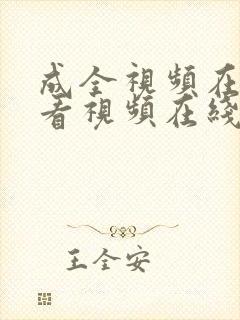 成全視頻在
看視頻在綫
王全安